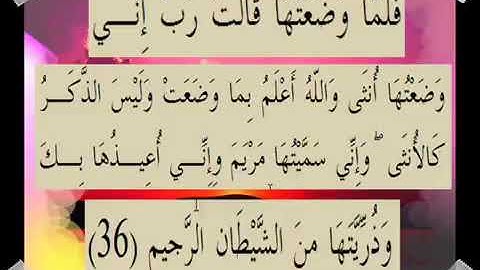 فَلَمَّا وَضَعَتْهَا قَالَتْ رَبِّ إِنِّـــي
وَضَعْتُهَا أُنْثَى وَاللَّهُ أَعْلَمُ بِمَا وَضَعَتْ وَلَيْسَ الذَّكَـــرُ
كَالأُنْثَى ۖ وَإِنِّي سَمَّيْتُهَا مَرْيَمَ وَإِنِّـــي أُعِيـــذُهَا بِـــكَ
وَذُرِّيَّتَهَا مِنَ الشَّيْطَانِ الرَّجِيمِ (36)